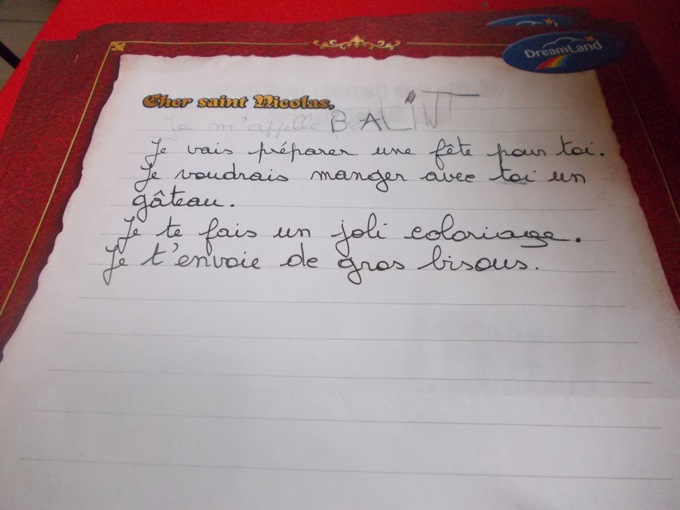 DreamLand
Cher saint Nicolas,
Je m'appelle BALINT
Je vais préparer une fête pour toi.
Je voudrais manger avec toi un
gâteau.
Je te fais un joli coloriage.
Je t'envoie de gros bisous.